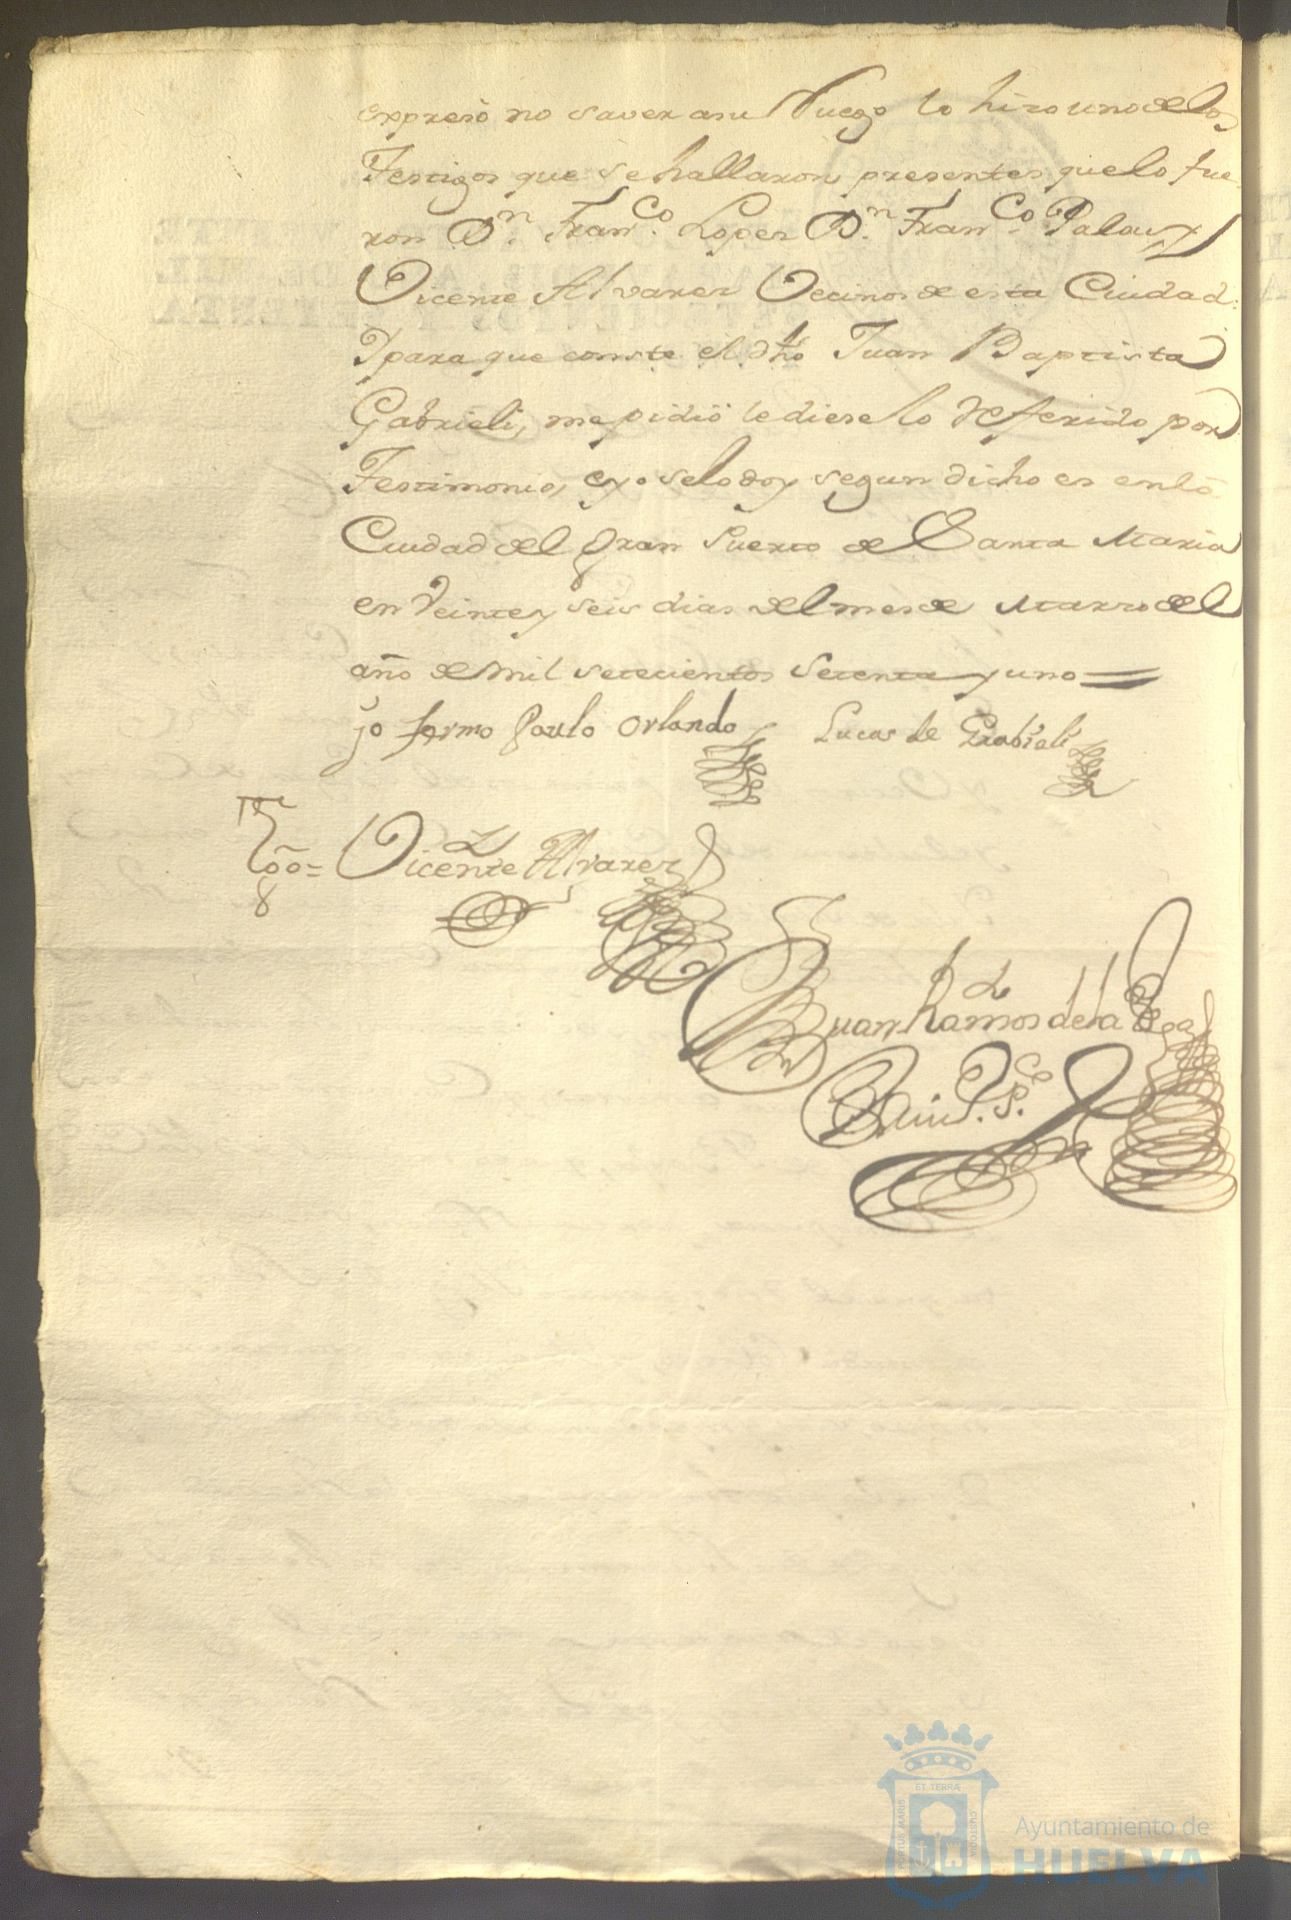 expresò no saver asu Ruego lo hizo uno de los
Testigos que se hallaron presentes que lo fue
ron Dn. Franco. Lopez Dn. Franco. Palau y
Vicente Alvarez Vecinos de esta Ciudad
Ypara que conste el dho Juan Baptista
Gabrieli, me pidiò le diese lo Referido por
Testimonio, eyo selo doy segun dicho es en la
Ciudad del Gran Puerto de Santa Maria
en Veinte y seis dias del mes de Marzo del
año de mil setecientos setenta y uno
jo firmo Paulo Orlando Lucas de Grabieli
Tgo = Vicente Alvarez
Juan Ramos de la Vega
PORTUS MARIS ET TERRÆ CUSTODIA
Ayuntamiento de
HUELVA